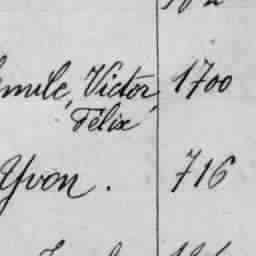 Victor, 1700
Félix
Yvon. 716